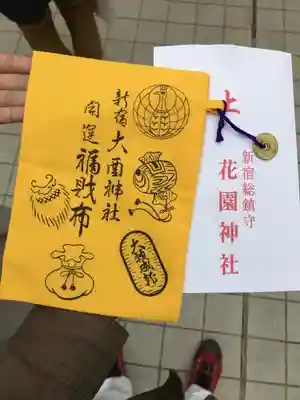 新宿
大酉神社
開運
福財布
大願成就
上
新宿総鎮守
花園神社